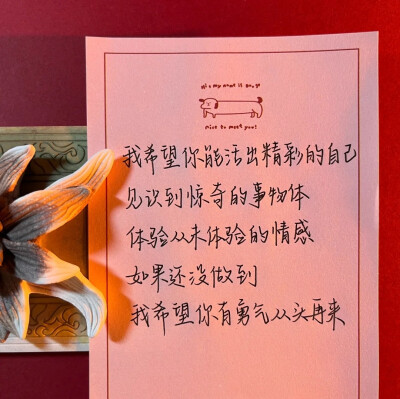 Hi ~ my name is
nice to meet you!
我希望你能活出精彩的自己
见识到惊奇的事物体
体验从未体验的情感
如果还没做到
我希望你有勇气从头再来